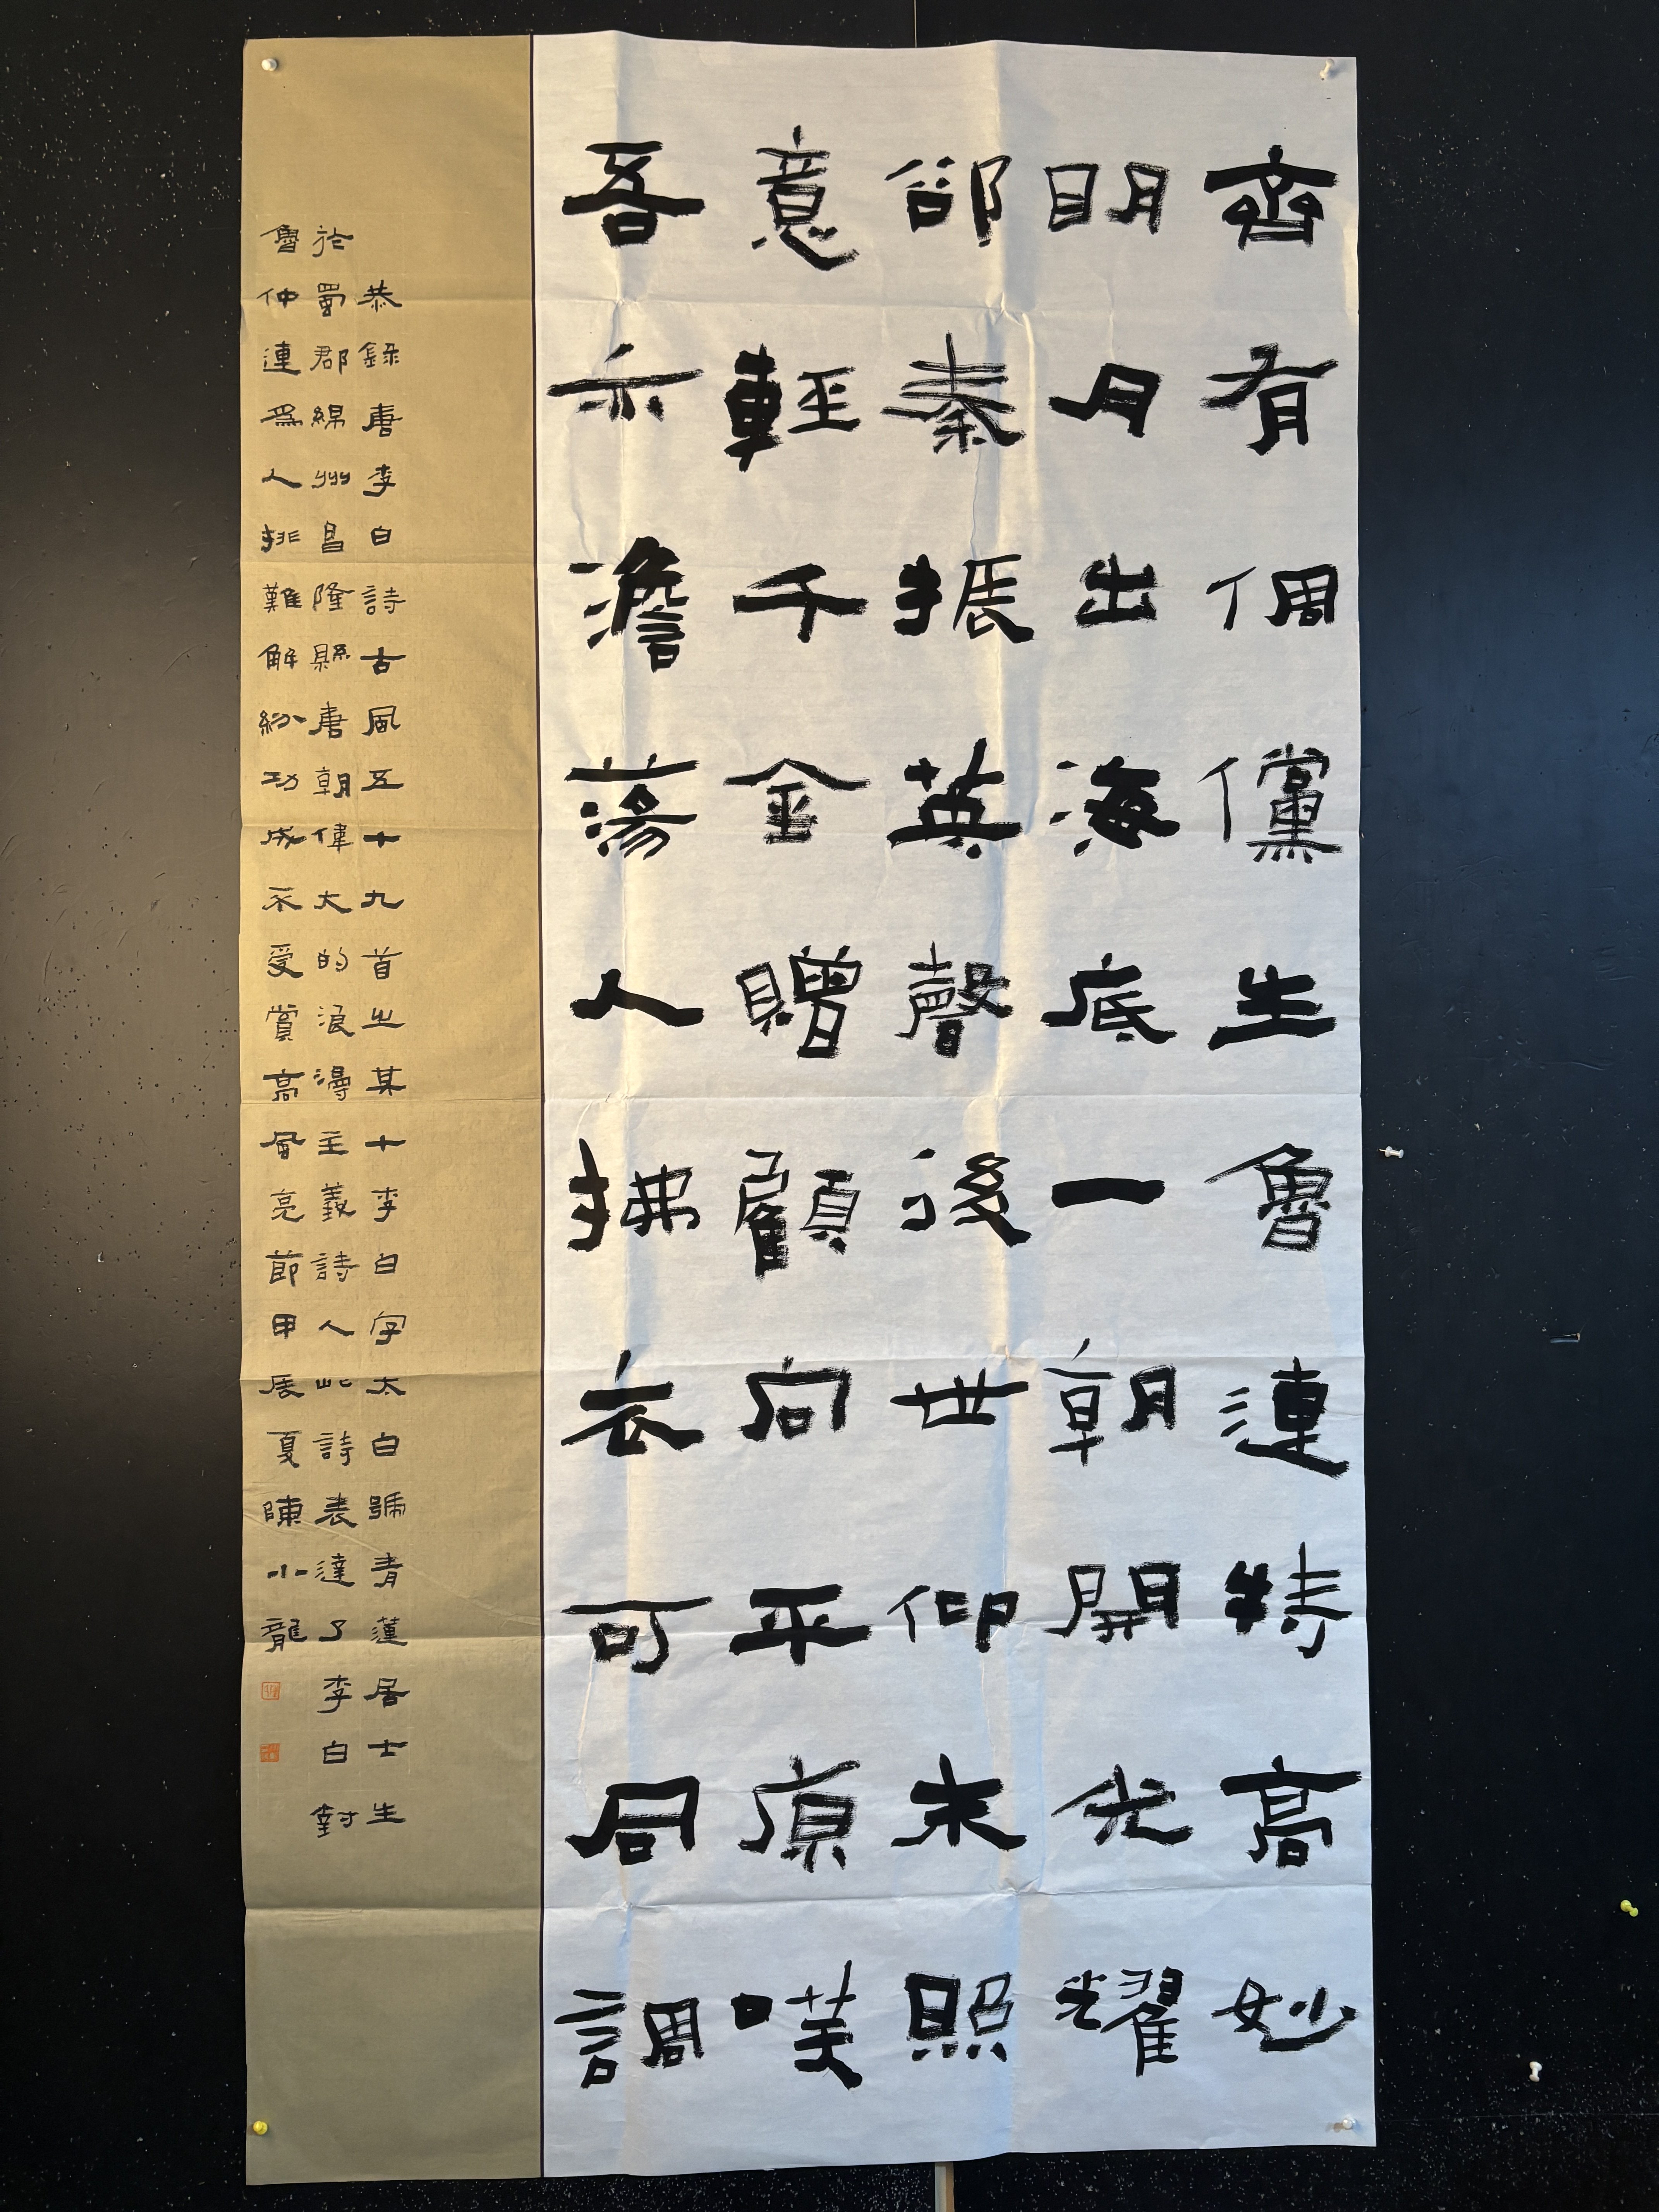 齊有倜儻生魯連特高妙
明月出海底一朝開光耀
卻秦振英聲後世仰末照
意輕千金贈顧向平原笑
吾亦澹蕩人拂衣可同調
恭錄唐李白詩古風五十九首之其十李白字太白號青蓮居士生
於蜀郡綿州昌隆縣唐朝偉大的浪漫主義詩人此詩表達了李白對
魯仲連為人排難解紛功成不受賞高風亮節甲辰夏陳小龍